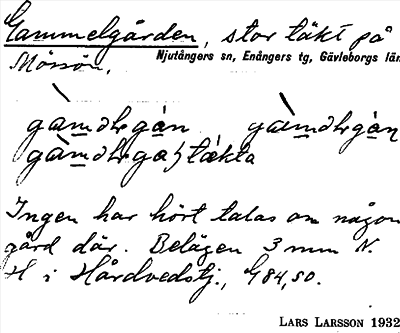 Gammelgården, stor täkt på
Njutångers sn, Enångers tg, Gävleborgs län
Mössön.
Ingen har hört talas om någon
gård där. Belägen 3 mm N.
H i Hårdvedstj., G84,50.
LARS LARSSON 1932